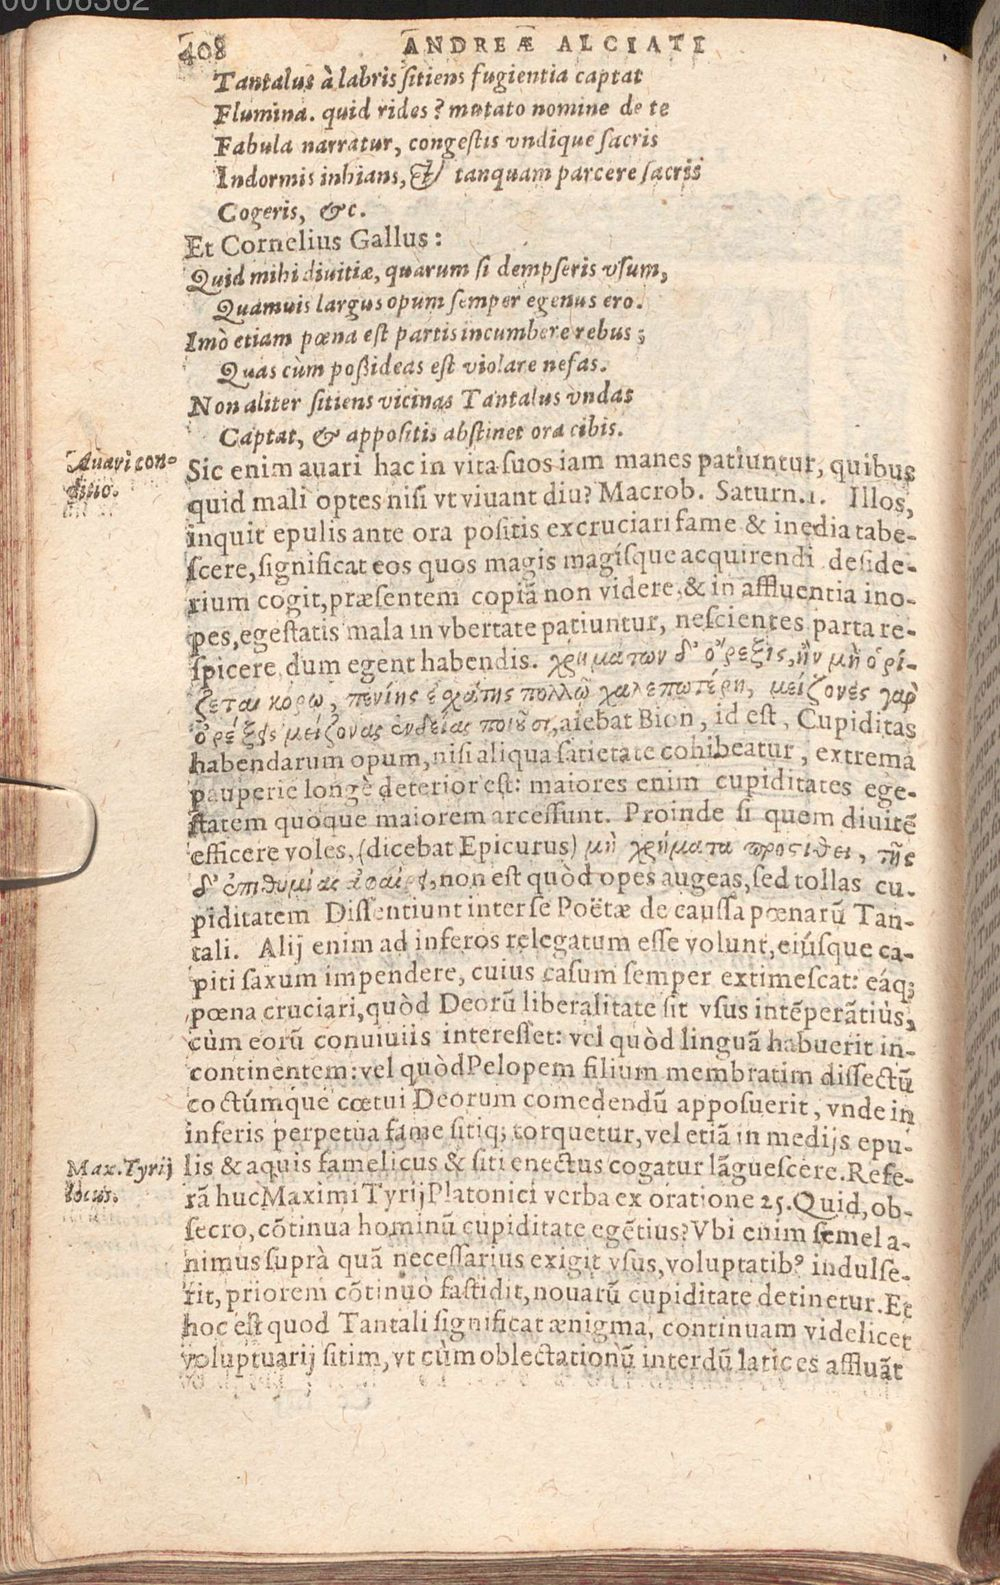 00106362
408 ANDREÆ ALCIATI
Tantalus à labris ſitiens fugientia captat
Flumina. quid rides? mutato nomine de te
Fabula narratur, congeſtis vndique ſacris
Indormis inhians, & tanquam parcere ſacris
Cogeris, &c.
Et Cornelius Gallus:
Quid mihi diuitiæ, quarum ſi dempſeris vſum,
Quamuis largus opum ſemper egenus ero.
Imò etiam pœna eſt partis incumbere rebus;
Quas cùm poßideas eſt violare nefas.
Non aliter ſitiens vicinas Tantalus vndas
Captat, & appoſitis abſtinet ora cibis.
Auari con-
ditio.
Sic enim auari hac in vita ſuos iam manes patiuntur, quibus
quid mali optes niſi vt viuant diu? Macrob. Saturn. 1. Illos,
inquit epulis ante ora poſitis excruciari fame & inedia tabe-
ſcere, ſignificat eos quos magis magiſque acquirendi deſide-
rium cogit, præſentem copiã non videre, & in affluentia ino-
pes, egeſtatis mala in vbertate patiuntur, neſcientes parta re-
ſpicere, dum egent habendis. χρημάτων δ' ὄρεξις, ἢν μὴ ὁρί-
ζεται κόρῳ, πενίης ἐσχάτης πολλῷ χαλεπωτέρη, μείζονες γαρ
ὀρέξεις μείζονας ἐνδείας ποιοῦσι, aiebat Bion, id eſt, Cupiditas
habendarum opum, niſi aliqua ſatietate cohibeatur, extrema
pauperie longè deterior eſt: maiores enim cupiditates ege-
ſtatem quoque maiorem arceſſunt. Proinde ſi quem diuitẽ
efficere voles, (dicebat Epicurus) μὴ χρήματα προστίθει, τῆς
δ' ἐπιθυμίας ἀφαίρει, non eſt quòd opes augeas, ſed tollas cu-
piditatem Diſſentiunt inter ſe Poëtæ de cauſſa pœnarũ Tan-
tali. Alij enim ad inferos relegatum eſſe volunt, eiúſque ca-
piti ſaxum impendere, cuius caſum ſemper extimeſcat: eáq;
pœna cruciari, quòd Deorũ liberalitate ſit vſus intẽperãtiùs,
cùm eorũ conuiuiis intereſſet: vel quòd linguã habuerit in-
continentem: vel quòd Pelopem filium membratim diſſectũ
coctúmque cœtui Deorum comedendũ appoſuerit, vnde in
inferis perpetua fame ſitiq; torquetur, vel etiã in medijs epu-
Max. Tyrij
locus.
lis & aquis famelicus & ſiti enectus cogatur lãgueſcere. Refe-
rã huc Maximi Tyrij Platonici verba ex oratione 25. Quid, ob-
ſecro, cõtinua hominũ cupiditate egẽtius? Vbi enim ſemel a-
nimus ſuprà quã neceſſarius exigit vſus, voluptatibꝰ indulſe-
rit, priorem cõtinuò faſtidit, nouarũ cupiditate detinetur. Et
hoc eſt quod Tantali ſignificat ænigma, continuam videlicet
voluptuarij ſitim, vt cùm oblectationũ interdũ latices affluãt